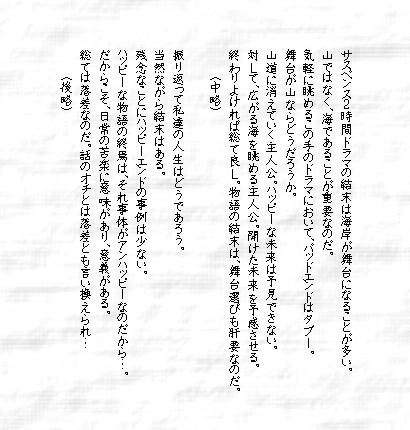 サスペンス2時間ドラマの結末は海岸が舞台になることが多い。
山ではなく、海であることが重要なのだ。
気軽に眺めるこの手のドラマにおいて、バッドエンドはタブー。
舞台が山ならどうだろうか。
山道に消えていく主人公。ハッピーな未来は予見できない。
対して、広がる海を眺める主人公。開けた未来を予感させる。
終わりよければ総て良し。物語の結末は、舞台選びも肝要なのだ。
（中略）
振り返って私達の人生はどうであろう。
当然ながら結末はある。
残念なことにハッピーエンドの事例は少ない。
ハッピーな物語の終焉は、それ事体がアンハッピーなのだから…。
だからこそ、日常の苦楽に意味があり、意義がある。
総ては落差なのだ。話のオチとは落差とも言い換えられ…
（後略）